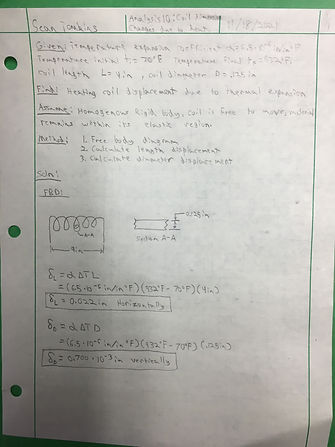 Sean Tomkins
Analysis 10: Coil
Changes due to heat.
11/18/2021
1
Given: Temperature expansion coefficient α=6.5·10⁻⁶ in/in°F
Temperature initial tᵢ = 70°F Temperature final t_f = 932°F
coil length L= 4in, coil diameter D=.125in
Find: Heating coil displacement due to thermal expansion
Assume: Homogenous Rigid body, coil is free to move, material
remains within its elastic region.
Method: 1. Free body diagram
2. Calculate length displacement
3. Calculate diameter displacement
Soln:
FBD:
0.125in
A-A
section A-A
4in
δL = α ΔT L
= (6.5·10⁻⁶ in/in°F)(932°F - 70°F)(4in)
δL = 0.022in Horizontally
δD = α ΔT D
= (6.5·10⁻⁶ in/in°F)(932°F - 70°F)(.125in)
δD = 0.700·10⁻³in vertically